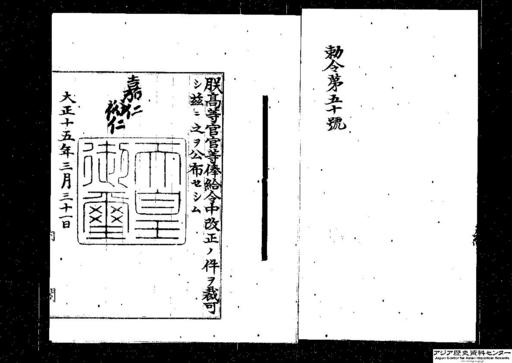 勅令第五十號
朕高等官官等俸給令中改正ノ件ヲ裁可
シ茲ニ之ヲ公布セシム
嘉仁
裕仁
天皇
御璽
大正十五年三月三十一日
アジア歴史資料センター
Japan Center for Asian Historical Records